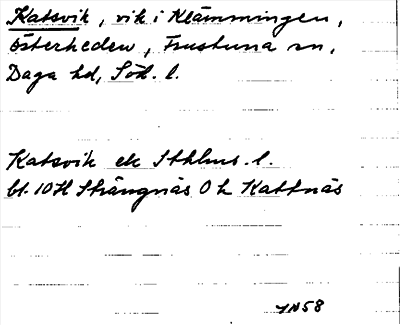 Katsvik, vik i Klämmingen,
Österheden, Frustuna sn,
Daga hd, Söd. l.
Katsvik ek Sthlms. l.
bl. 10H Strängnäs O h Kattnäs
JN58